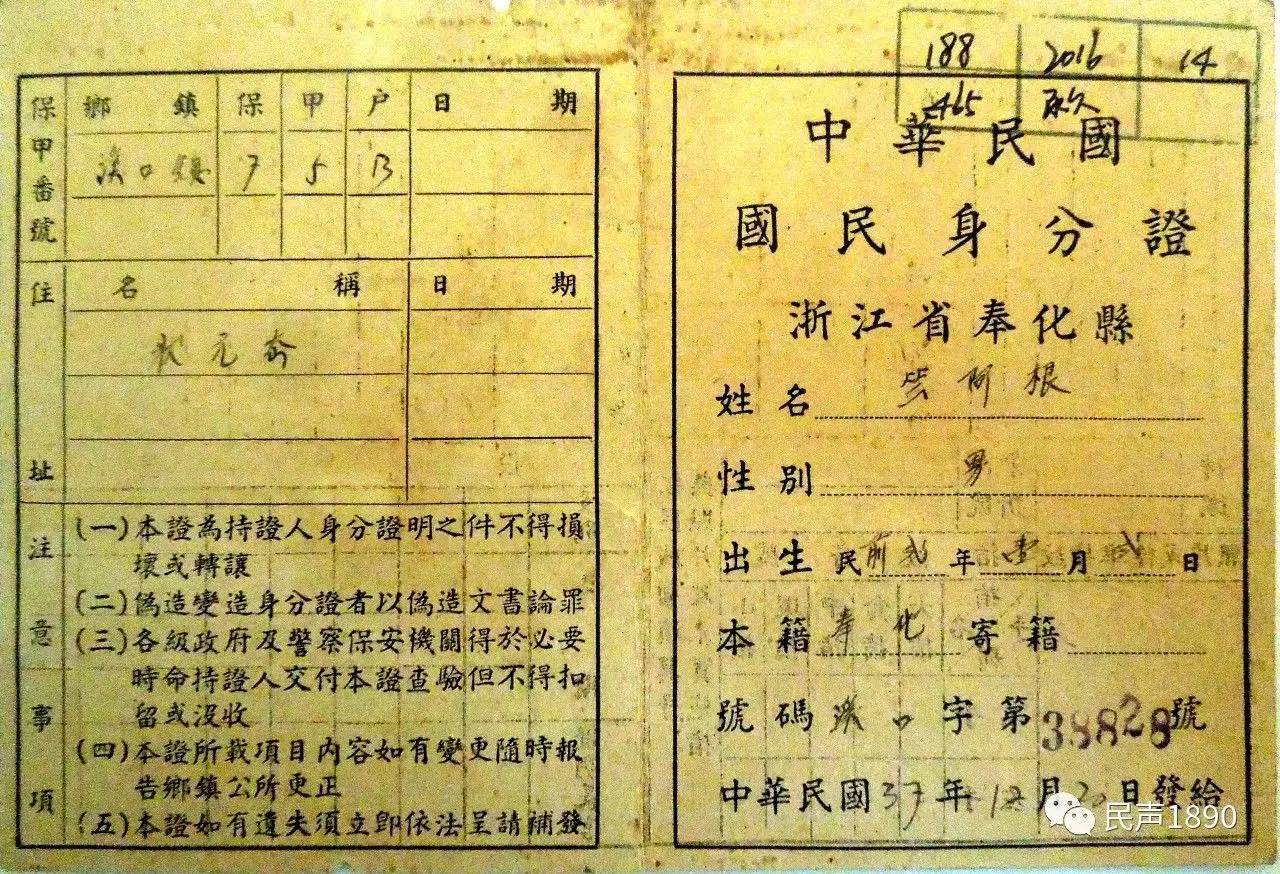 188 2016 14
465 永久
保甲番號
鄉鎮 保 甲 戶 日期
溪口鎮 7 5 13
住址
名稱 日期
狀元岙
注意事項
(一)本證為持證人身分證明之件不得損
壞或轉讓
(二)偽造變造身分證者以偽造文書論罪
(三)各級政府及警察保安機關得於必要
時命持證人交付本證查驗但不得扣
留或沒收
(四)本證所載項目內容如有變更隨時報
告鄉鎮公所更正
(五)本證如有遺失須立即依法呈請補發
中華民國
國民身分證
浙江省奉化縣
姓名 阿根
性別 男
出生 民前 年 月 日
本籍 奉化 寄籍
號碼 溪口字第38828號
中華民國37年12月20日發給
民声1890